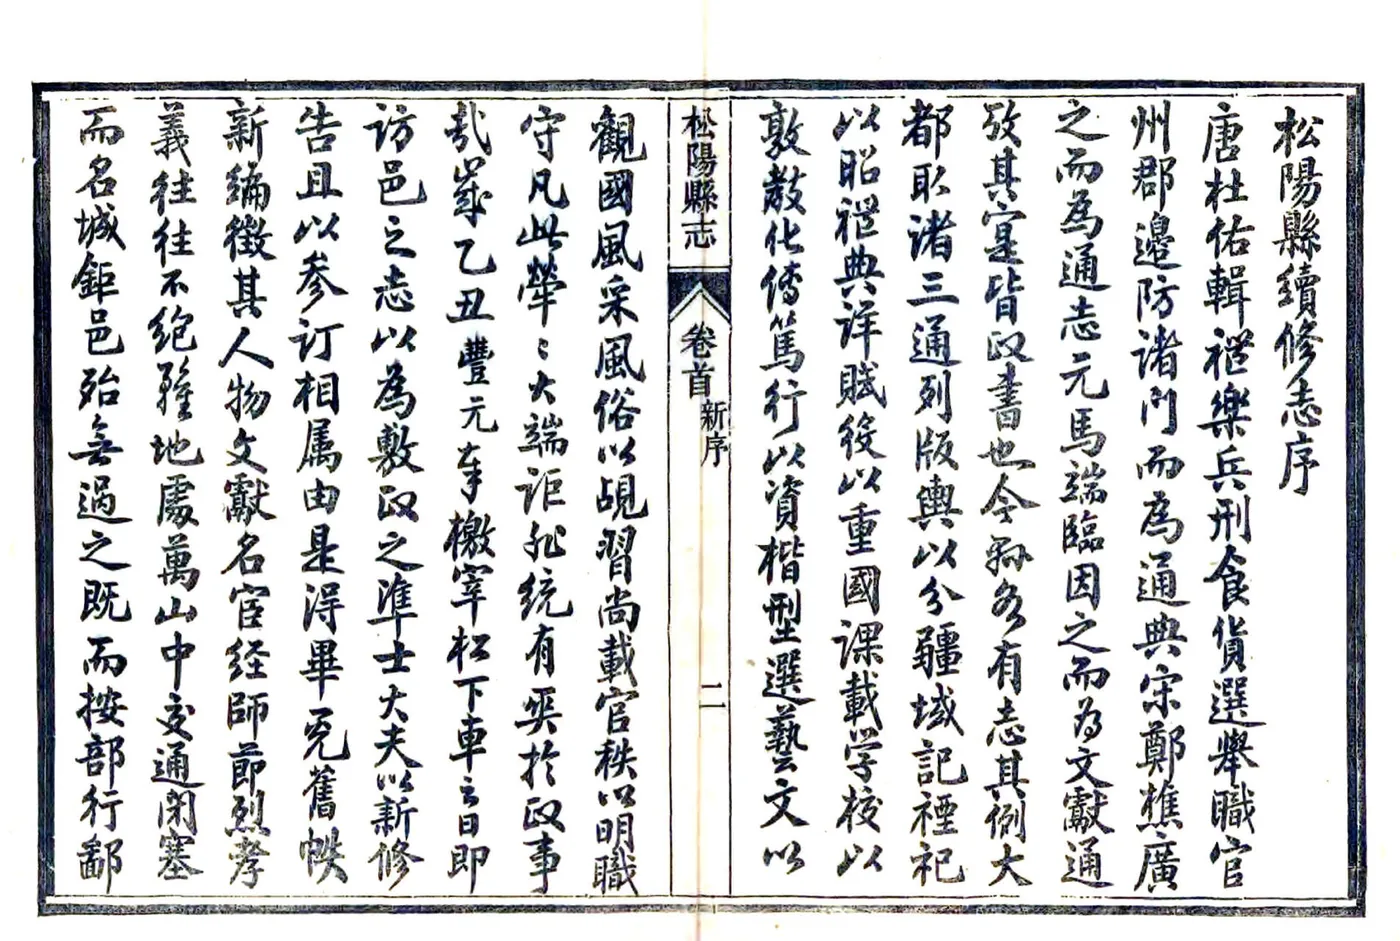 松陽縣續修志序
唐杜佑輯禮樂兵刑食貨選舉職官
州郡邊防諸門而為通典宋鄭樵廣
之而為通志元馬端臨因之而為文獻通
攷其寔皆政書也今縣各有志其例大
都取諸三通列版輿以分疆域記禋祀
以昭禮典詳賦役以重國課載学校以
敦教化傳篤行以資楷型選藝文以
松陽縣志
卷首
新序
二
觀國風采風俗以覘習尚載官秩以明職
守凡此犖〻大端詎非統有奕於政事
哉歲乙丑豐元奉檄宰松下車之日即
訪邑之志以為敷政之準士大夫以新修
告且以參訂相属由是得畢覓舊帙
新編徵其人物文獻名宦经師節烈孝
義往往不絶雖地處萬山中交通閉塞
而名城鉅邑殆無過之既而按部行鄙